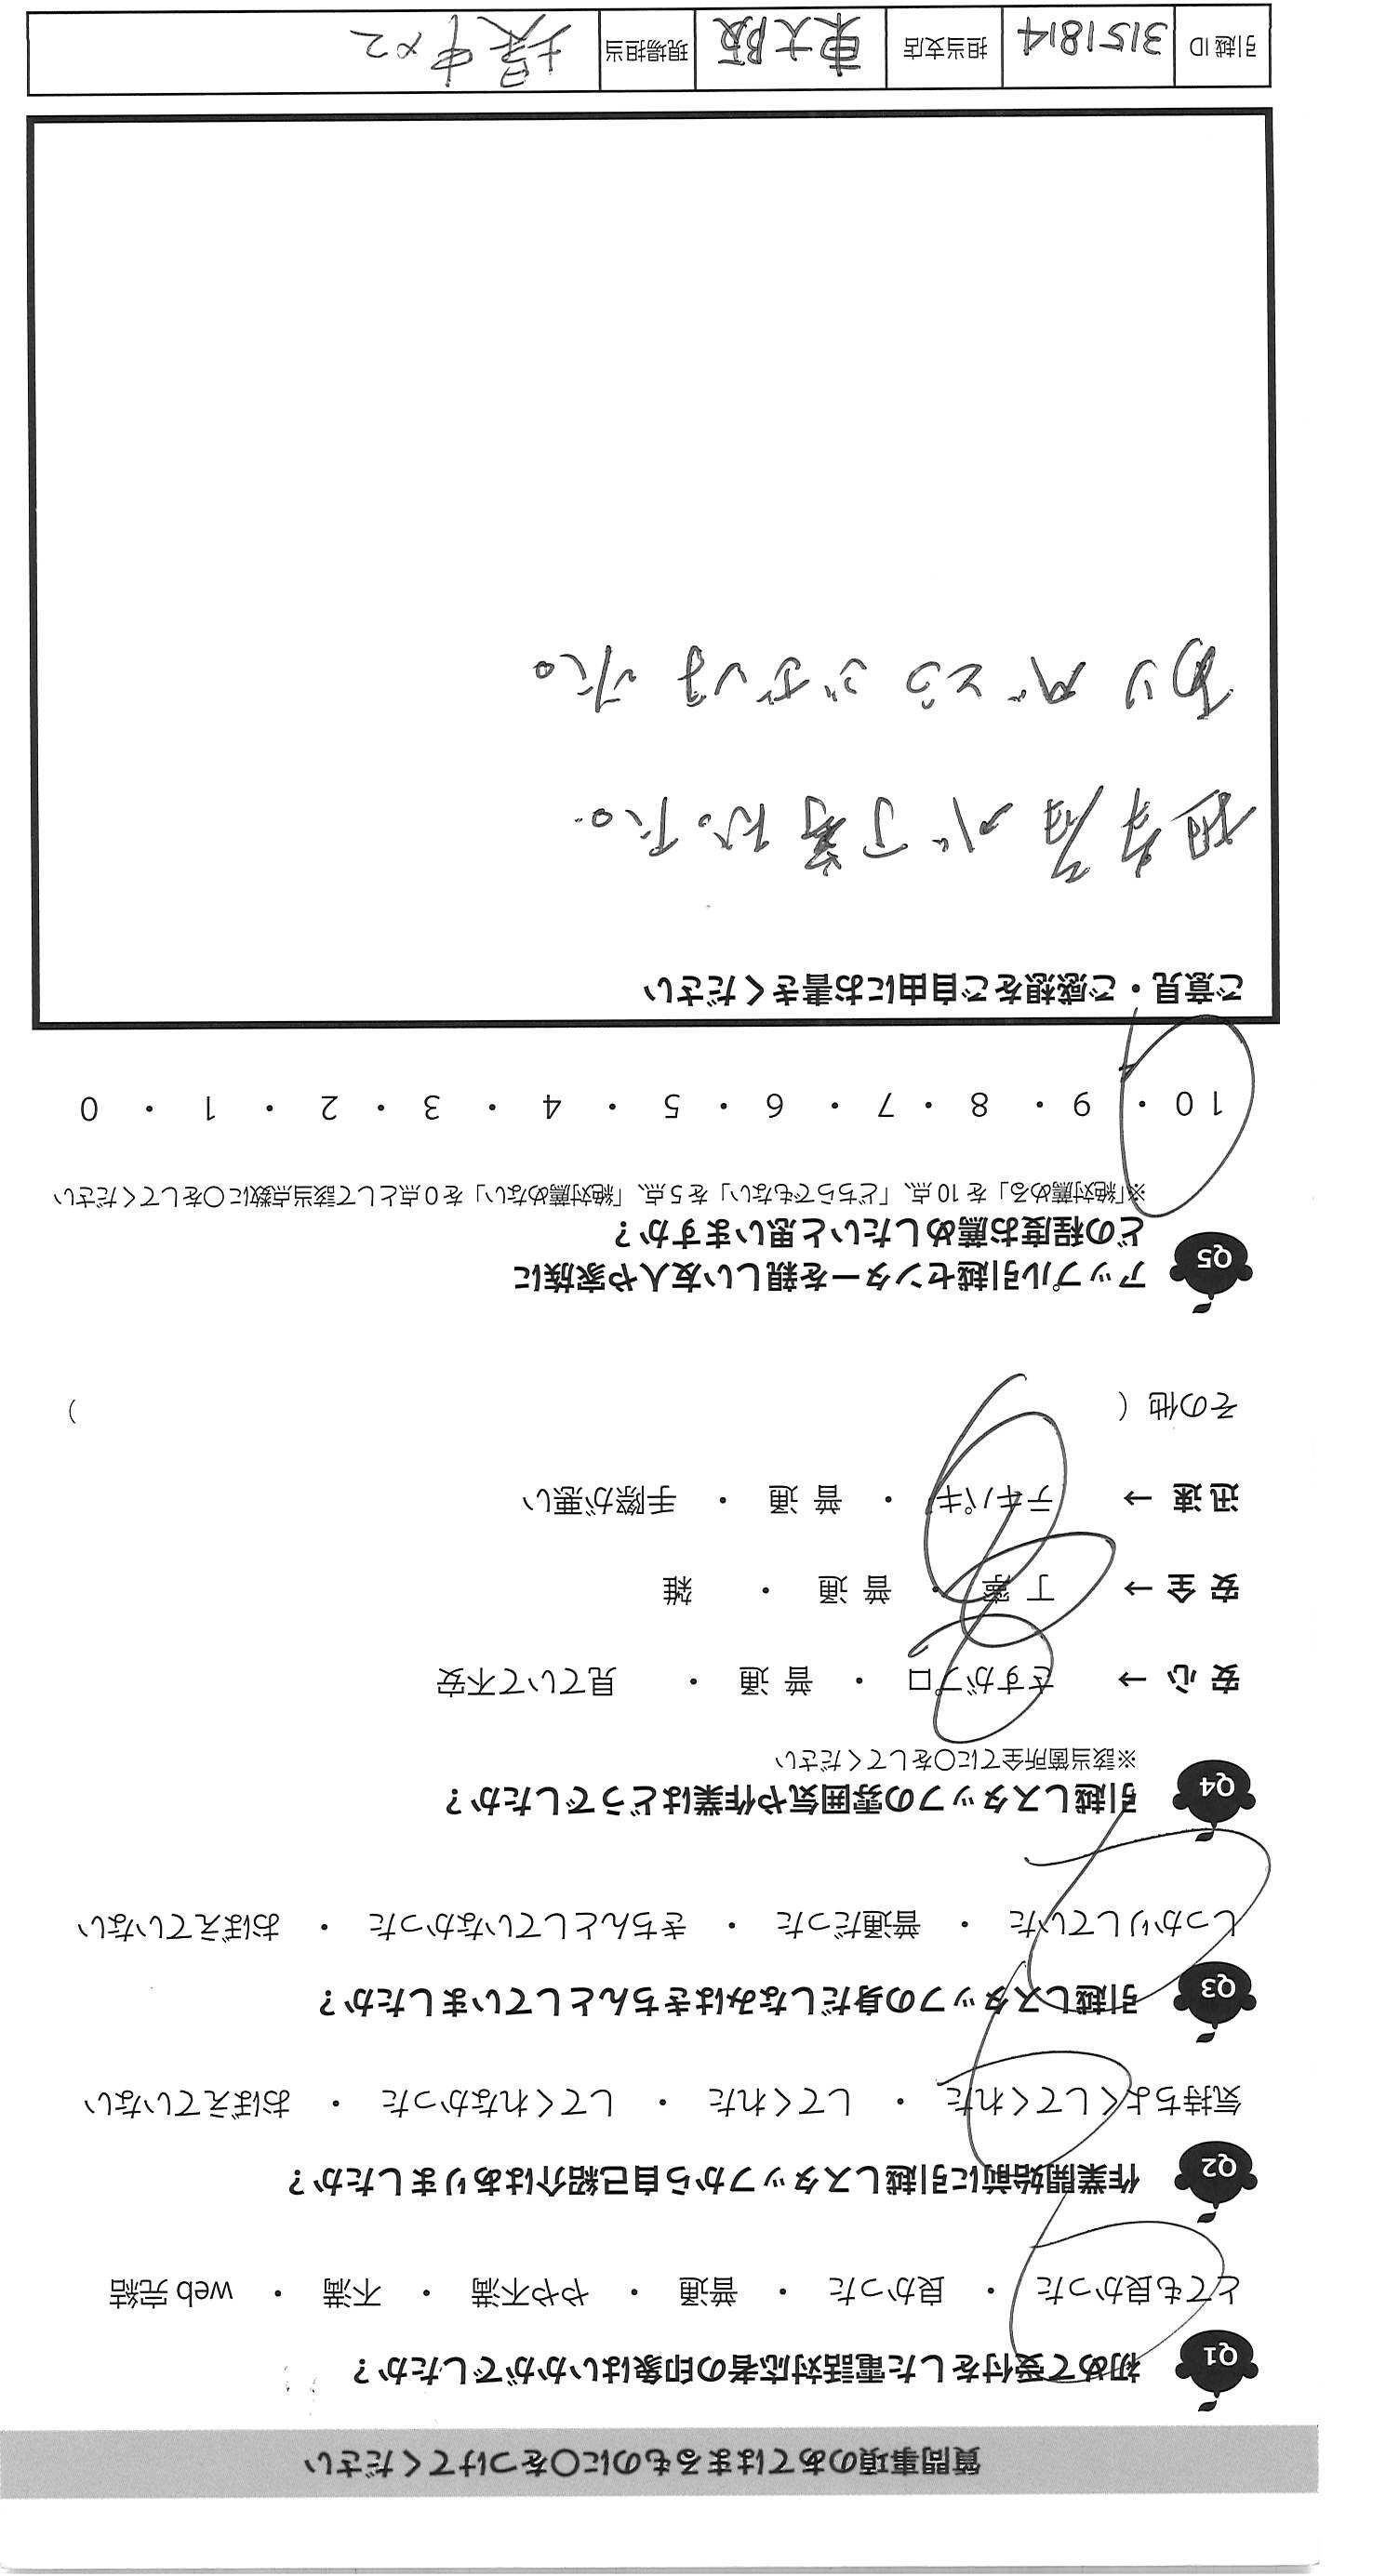 質問事項のあてはまるものに〇をつけてください
Q1 初めて受付をした電話対応者の印象はいかがでしたか？
とても良かった ・ 良かった ・ 普通 ・ やや不満 ・ 不満 ・ web 完結
Q2 作業開始前に引越しスタッフから自己紹介はありましたか？
気持ちよくしてくれた ・ してくれた ・ してくれなかった ・ おぼえていない
Q3 引越しスタッフの身だしなみはきちんとしていましたか？
しっかりしていた ・ 普通だった ・ きちんとしていなかった ・ おぼえていない
Q4 引越しスタッフの雰囲気や作業はどうでしたか？
※該当箇所全てに〇をしてください
安心 → さすがプロ ・ 普通 ・ 見ていて不安
安全 → 丁寧 ・ 普通 ・ 雑
迅速 → テキパキ ・ 普通 ・ 手際が悪い
その他（ ）
Q5 アップル引越センターを親しい友人や家族に
どの程度お薦めしたいと思いますか？
※「絶対薦める」を 10 点、「どちらでもない」を 5 点、「絶対薦めない」を 0 点として該当点数に〇をしてください
10 ・ 9 ・ 8 ・ 7 ・ 6 ・ 5 ・ 4 ・ 3 ・ 2 ・ 1 ・ 0
ご意見・ご感想をご自由にお書きください
担当者が丁寧だった。
ありがとうございました。
引越 ID 3151814 担当支店 東大阪 現場担当